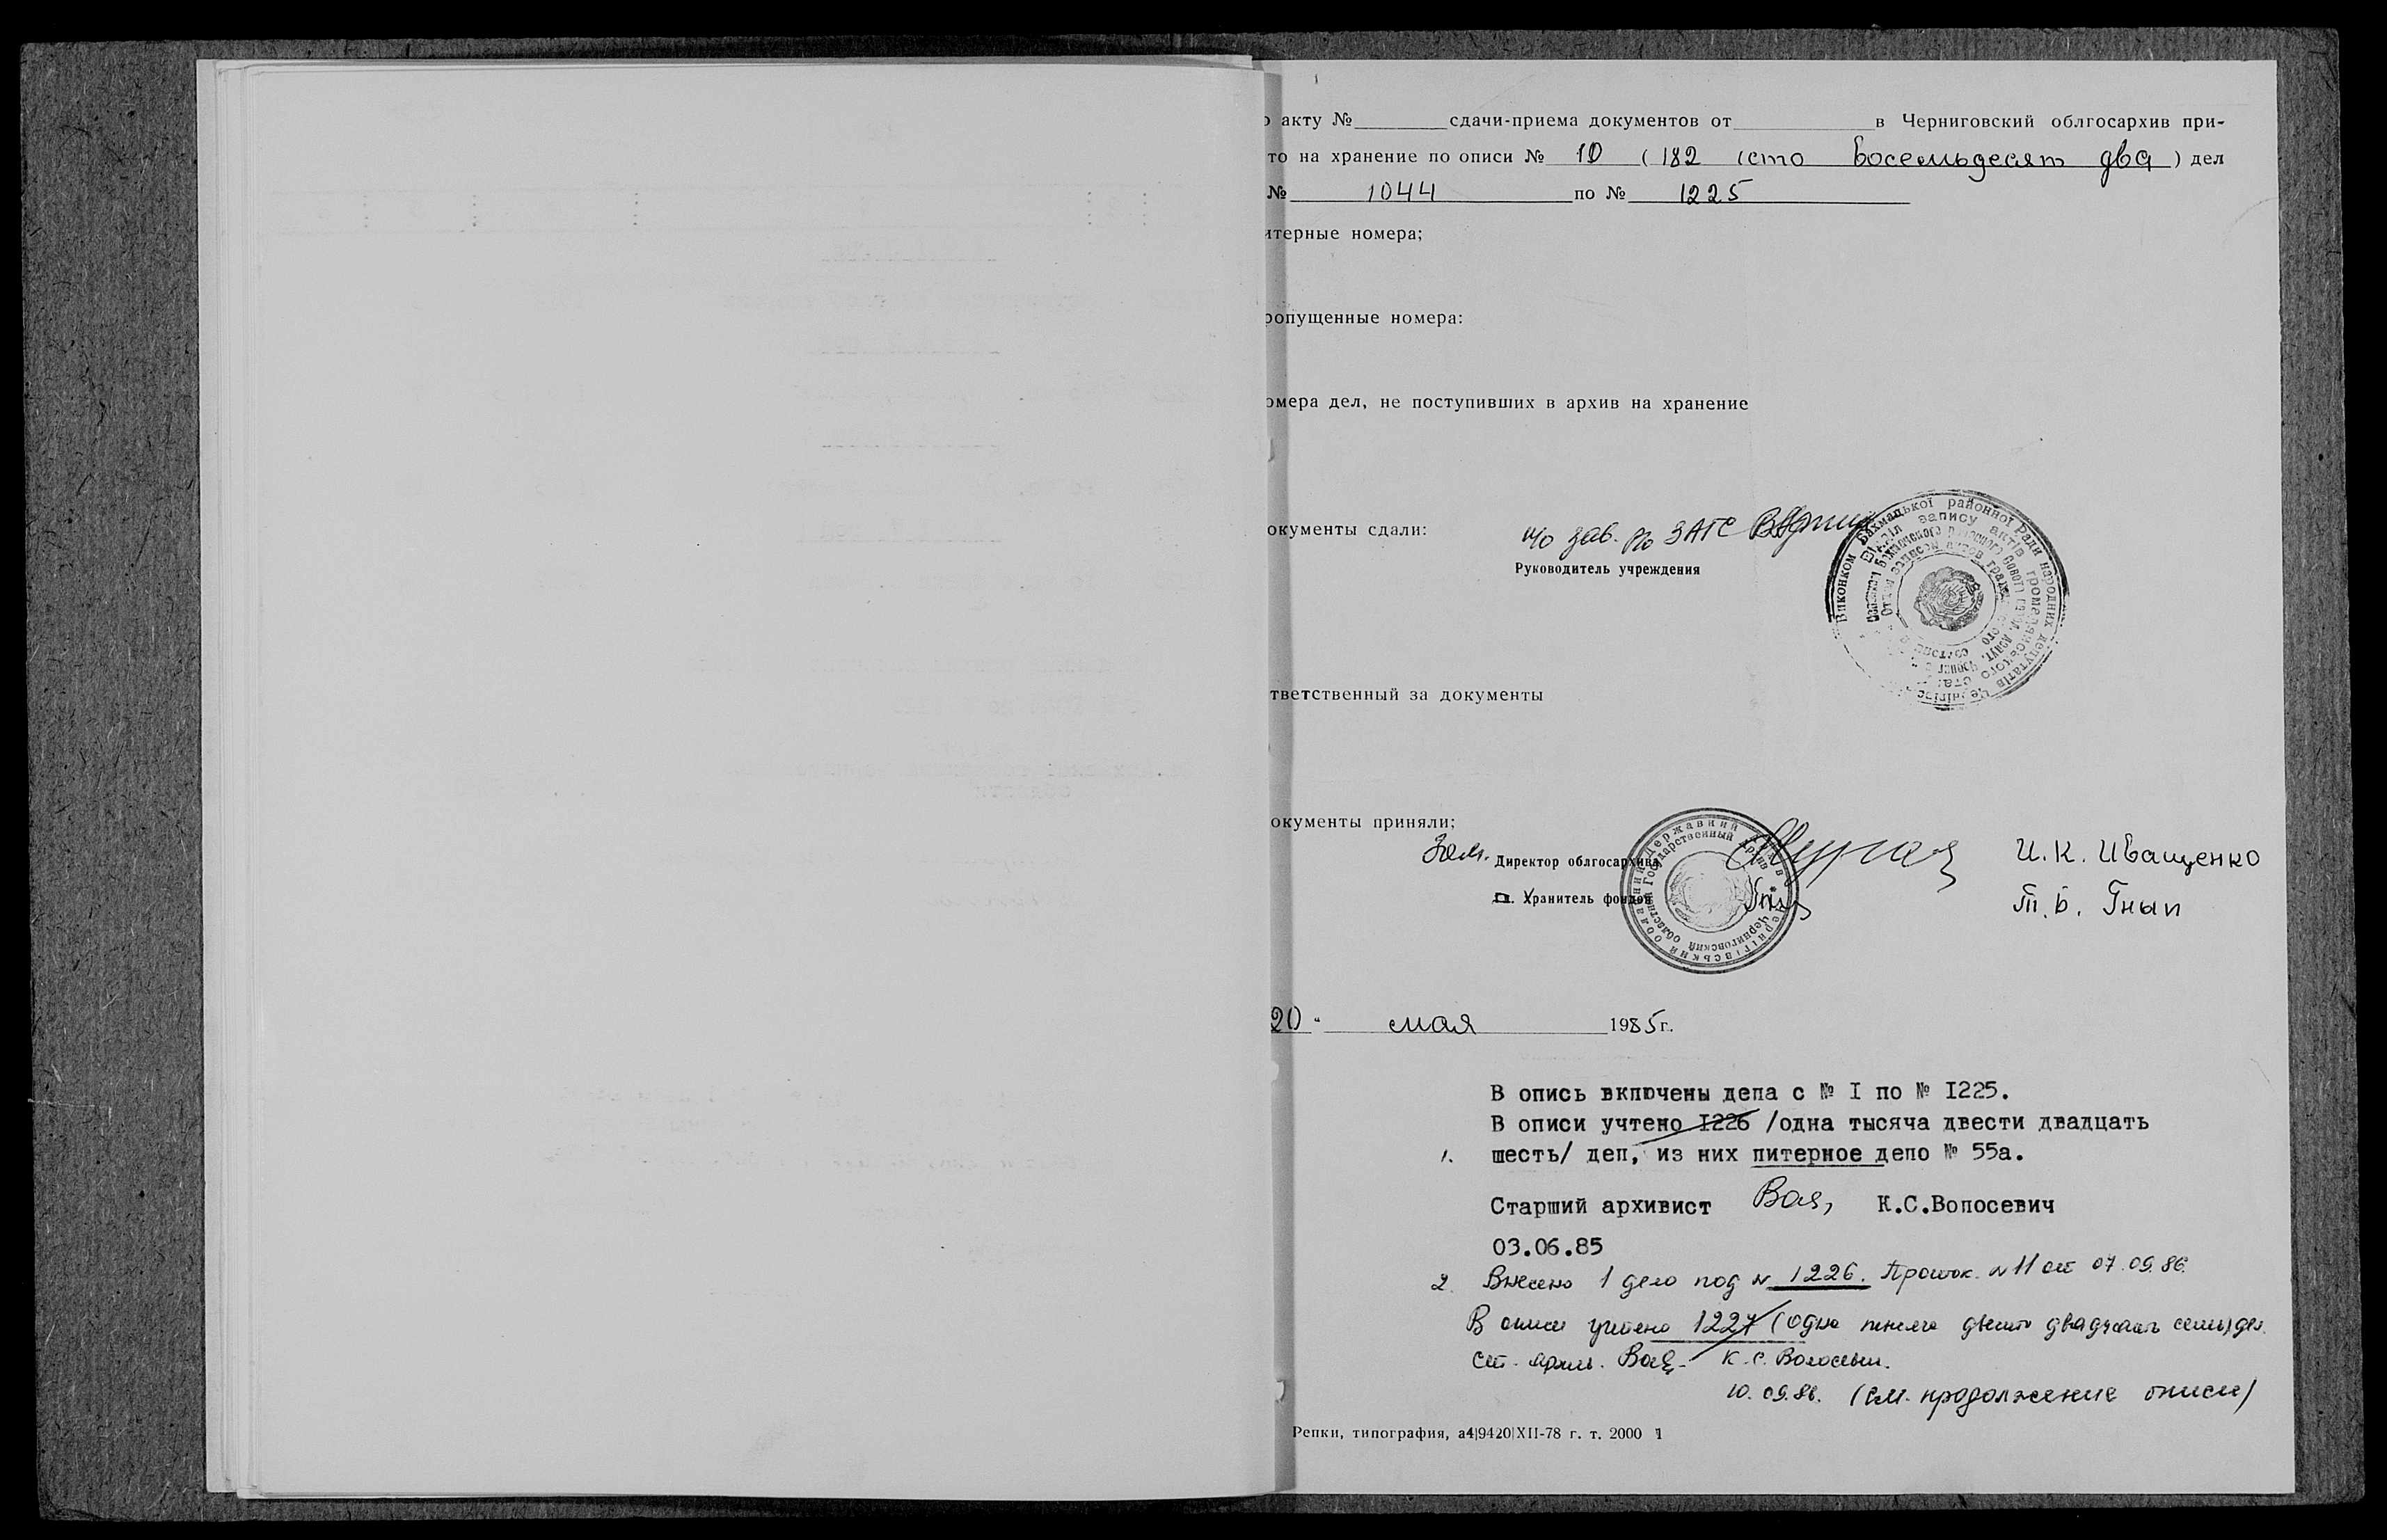 о акту №______сдачи-приема документов от______в Черниговский облгосархив при-
то на хранение по описи № 10 (182 (сто восемьдесят два) дел
№ 1044 по № 1225
итерные номера;
ропущенные номера:
омера дел, не поступивших в архив на хранение
окументы сдали: зав. ЗАГС
Руководитель учреждения
Виконком Бахмацької районної Ради народних депутатів
Відділ запису актів громадянського
тветственный за документы
окументы приняли;
Зам. Директор облгосархива И.К. Иващенко
Хранитель фондов Т.Б. Гнып
Державний архів Чернігівський обласний
Государственный архив Черниговский областной
20 " мая 1985 г.
В опись включены дела с № I по № I225.
В описи учтено I226 /одна тысяча двести двадцать
1. шесть/ дел, из них литерное дело № 55а.
Старший архивист К.С.Волосевич
03.06.85
2. Внесено 1 дело под № 1226. Проток. № 11 от 07.09.86.
В описи учтено 1227 (одна тысяча двести двадцать семь) дел.
Ст. архив. К.С. Волосевич.
10.09.86. (см. продолжение описи)
Репки, типография, а4|9420|XII-78 г. т. 2000